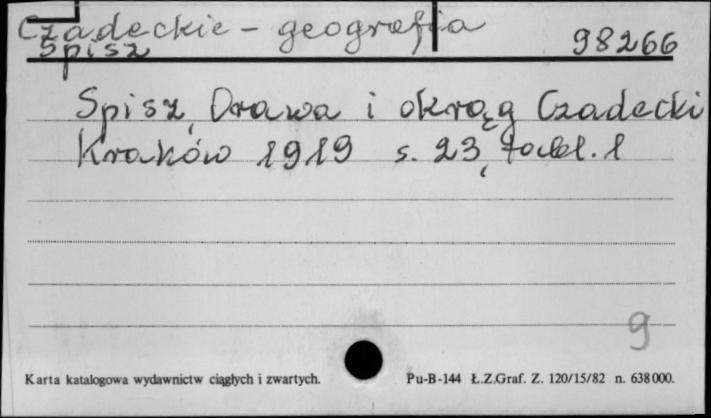 Czadeckie - geografia
Spisz
98266
Spisz, Orawa i okrąg Czadecki
Kraków 1919 s. 23, tabl. 1
9
Karta katalogowa wydawnictw ciągłych i zwartych.
Pu-B-144 Ł.Z.Graf. Z. 120/15/82 n. 638000.